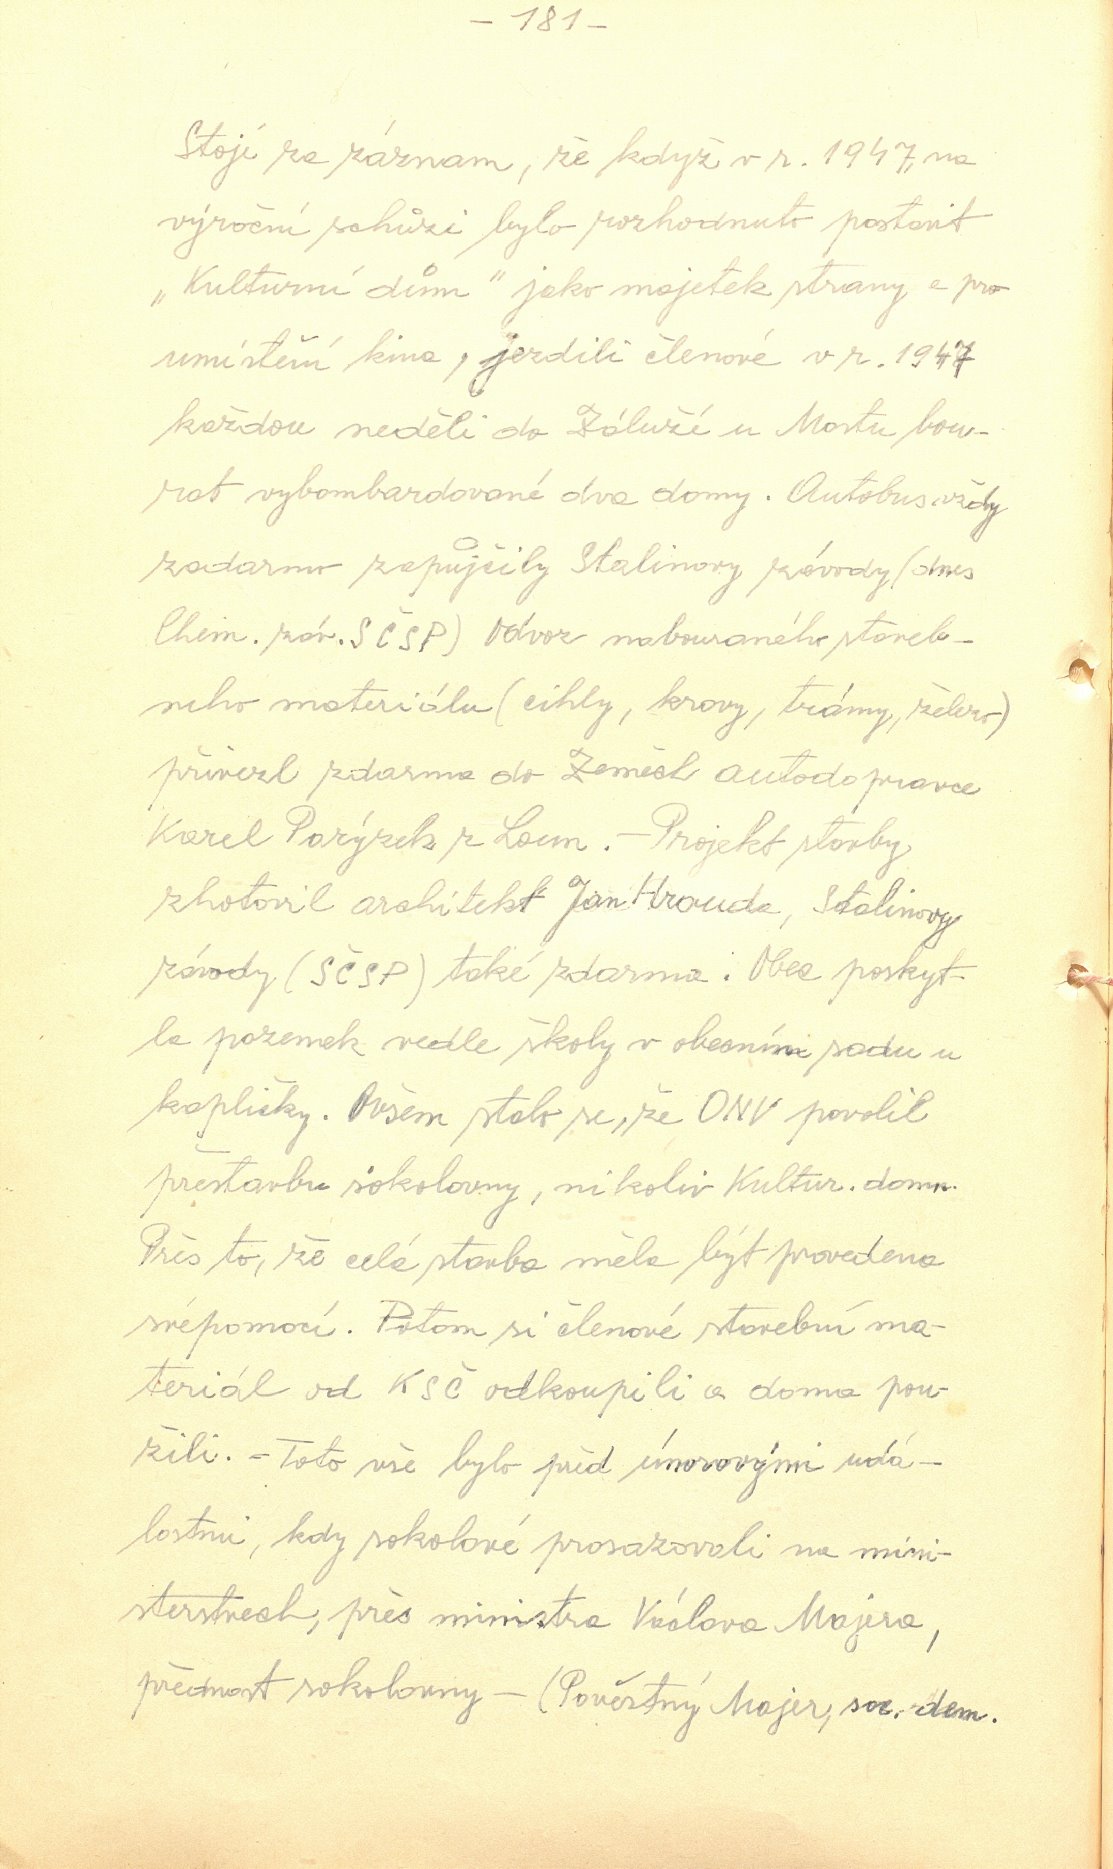 – 181 –
Stojí za záznam, že když v r. 1947, na
výroční schůzi bylo rozhodnuto postavit
„Kulturní dům" jako majetek strany a pro
umístění kina, jezdili členové v r. 1947
každou neděli do Záluží u Mostu bou-
rat vybombardované dva domy. Autobus vždy
zadarmo zapůjčily Stalinovy závody (dnes
Chem. záv. SČSP) Odvoz nabouraného staveb-
ního materiálu (cihly, krovy, trámy, železo)
přivezl zdarma do Zeměch autodopravce
Karel Parýzek z Loun. – Projekt stavby
zhotovil architekt Jan Hrouda, Stalinovy
závody (SČSP) také zdarma. Obec poskyt-
la pozemek vedle školy v obecním sadu u
kapličky. Ovšem stalo se, že ONV povolil
přestavbu sokolovny, nikoliv Kultur. domu.
Přes to, že celá stavba měla být provedena
svépomocí. Potom si členové stavební ma-
teriál od KSČ odkoupili a doma pou-
žili. – Toto vše bylo před únorovými udá-
lostmi, kdy sokolové prosazovali na mini-
sterstvech, přes ministra Václava Majera,
přednost sokolovny – (Pověstný Majer, soc. dem.